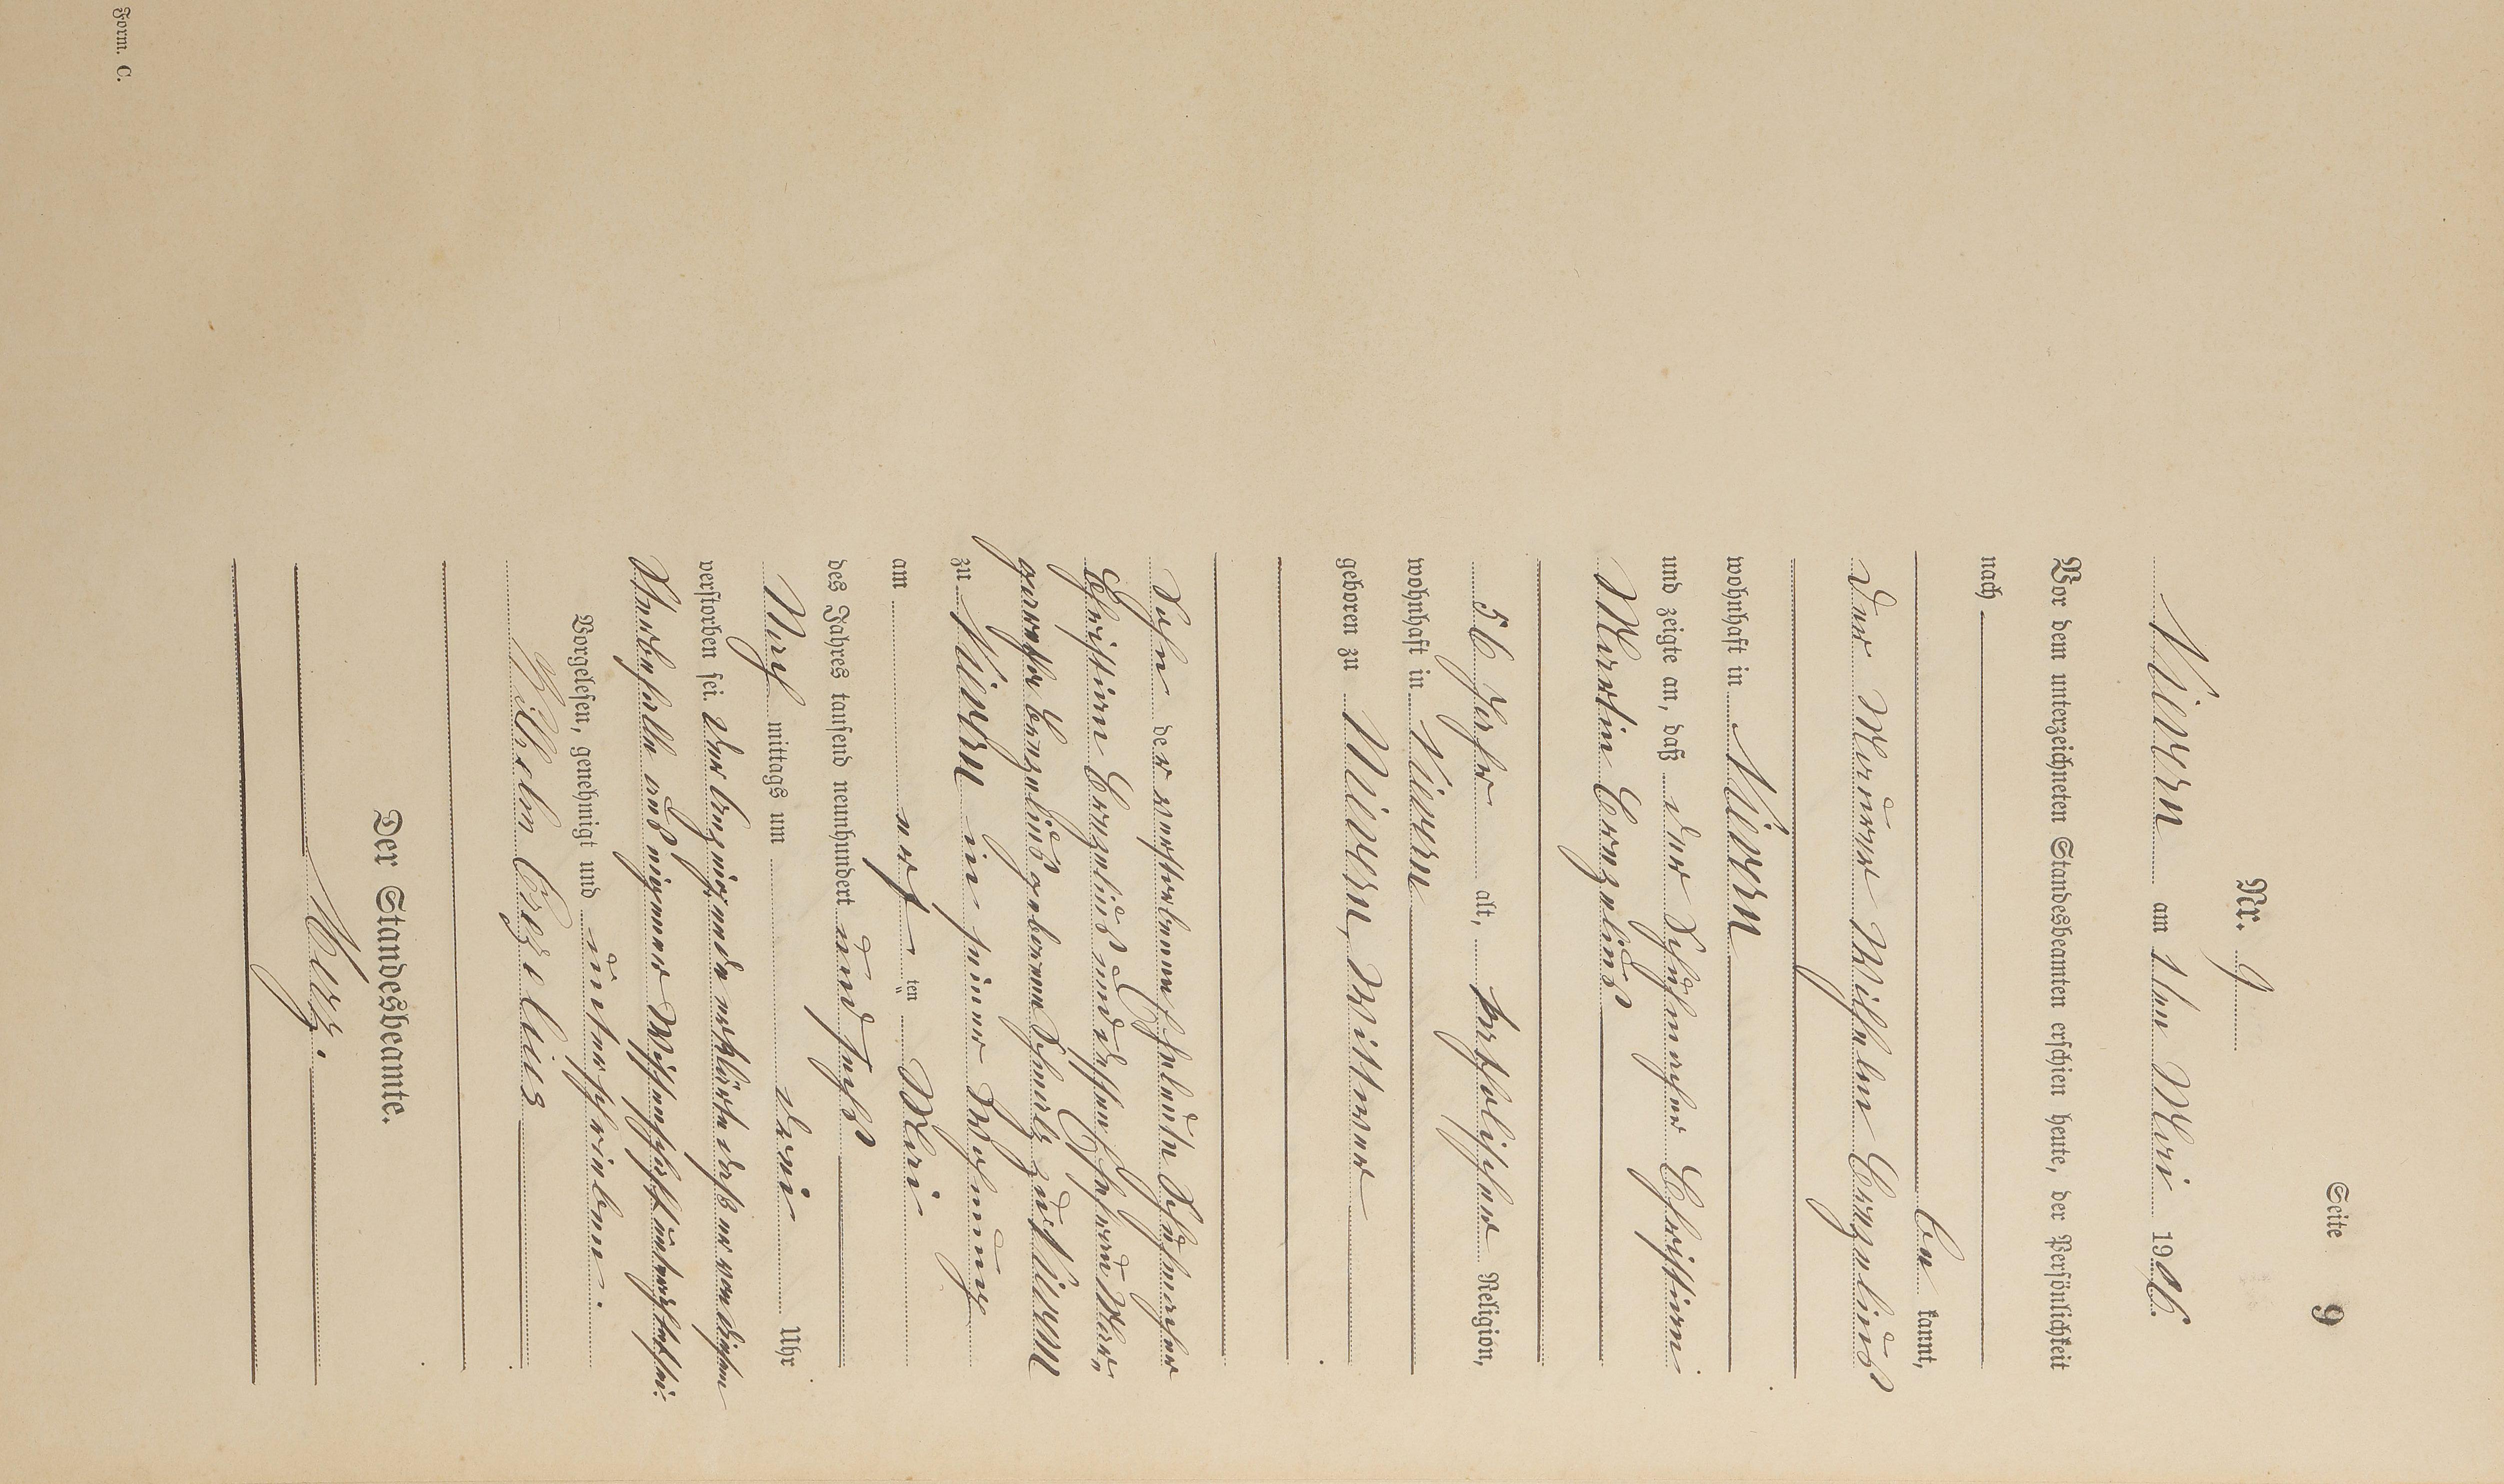 Seite 9
Nr. 9
Nievern am 1ten Mai 1906.
Vor dem unterzeichneten Standesbeamten erschien heute, der Persönlichkeit
nach
be kannt,
der Maurer Wilhelm Crezelius
wohnhaft in Nievern
und zeigte an, daß der Schuhmacher Christian
Martin Crezelius
56 Jahre alt, katholischer Religion,
wohnhaft in Nievern
geboren zu Nievern, Witwer
Sohn der verstorbenen Eheleute Schuhmacher
Christian Crezelius und dessen Ehefrau Mar-
garetha Crezelius geborene Schmitz zu Nievern
zu Nievern in seiner Wohnung
am ten Mai
des Jahres tausend neunhundert und sechs
Nach mittags um drei Uhr
verstorben sei. Der Anzeigende erklärte daß er von diesem
Sterbefalle aus eigener Wissenschaft unterrichtet sei.
Vorgelesen, genehmigt und unterschrieben.
Wilhelm Crezelius
Der Standesbeamte.
Form. C.